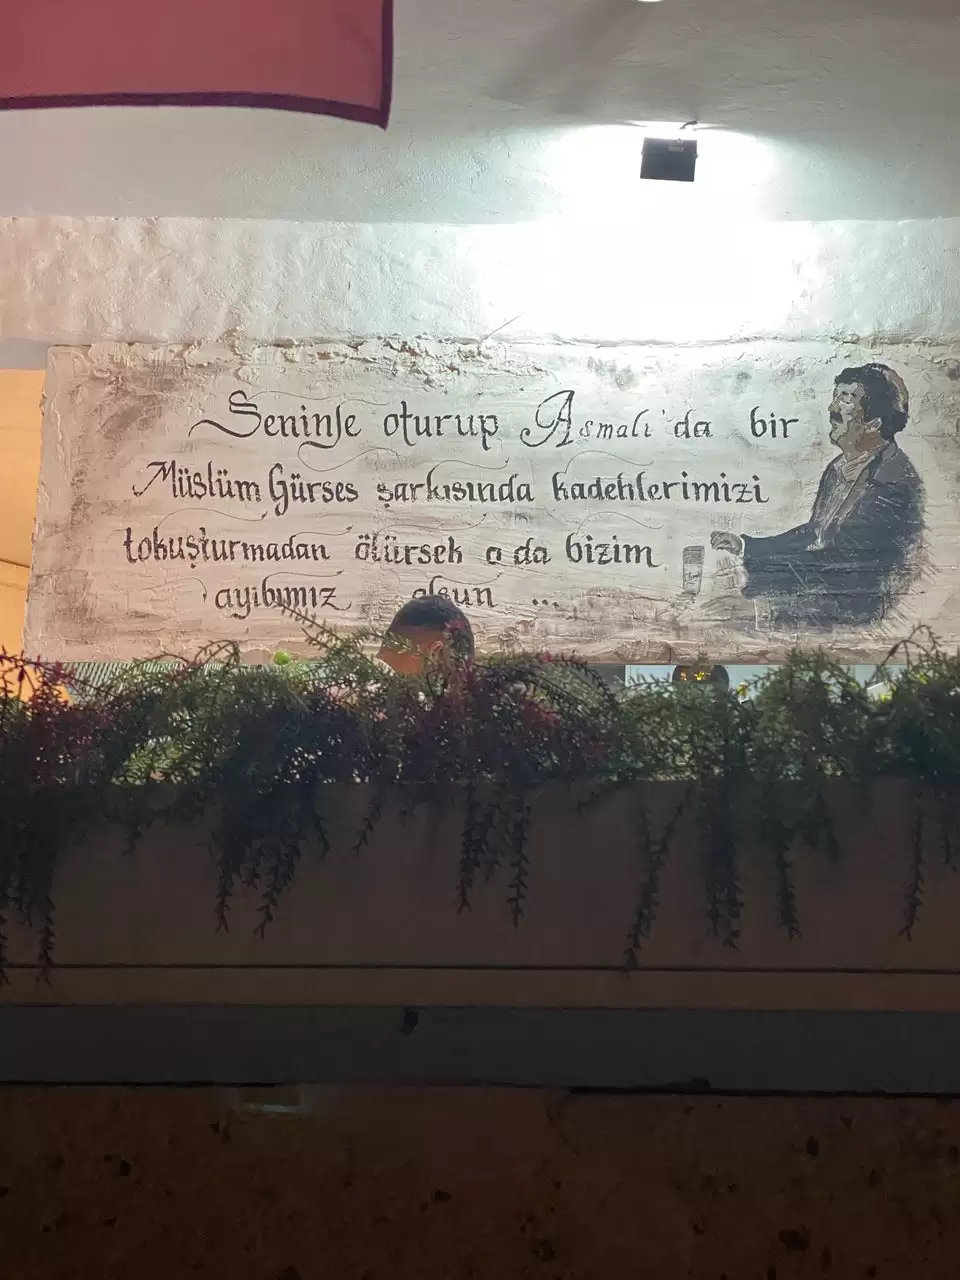 Seninle oturup Asmalı'da bir
Müslüm Gürses şarkısında kadehlerimizi
tokuşturmadan ölürsek o da bizim
ayıbımız olsun ...